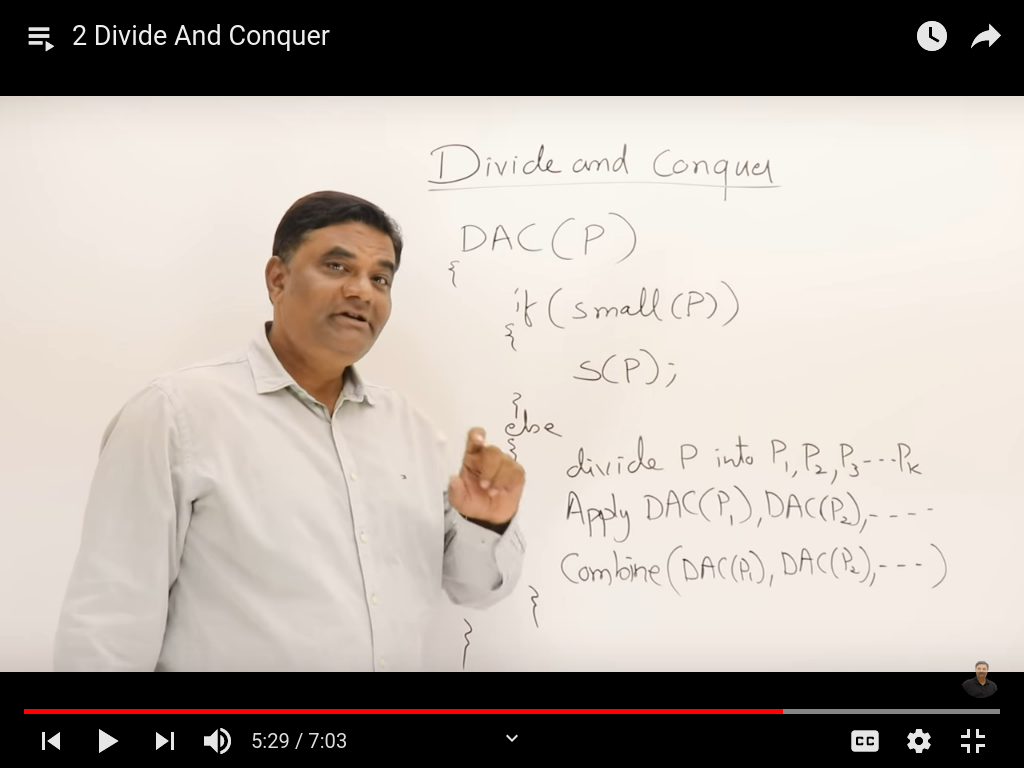 2 Divide And Conquer
Divide and Conquer
DAC(P)
{
if(small(P))
{
S(P);
}
else
{
divide P into P₁, P₂, P₃ ---Pₖ
Apply DAC(P₁), DAC(P₂), ----
Combine(DAC(P₁), DAC(P₂), ---)
}
}
5:29 / 7:03
CC